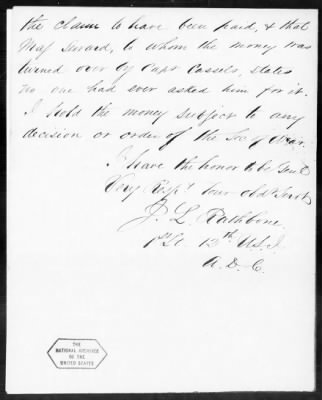 the claim to have been paid, & that
Maj Seward, to whom the money was
turned over by Capt Cassels, states
no one had ever asked him for it.
I hold the money subject to any
decision or order of the Sec of War.
I have the honor to be Genl
Very Respy Your obdt Servt
J. L. Rathbone
1st Lt 12th U.S.I.
A.D.C.
THE
NATIONAL ARCHIVES
OF THE
UNITED STATES